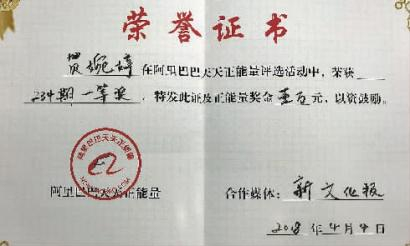 荣誉证书
贾婉婷 在阿里巴巴天天正能量评选活动中,荣获
234期一等奖,特发此证及正能量奖金 壹万 元,以资鼓励。
阿里巴巴天天正能量
阿里巴巴天天正能量
合作媒体:新文化报
2018 年 4 月 4 日